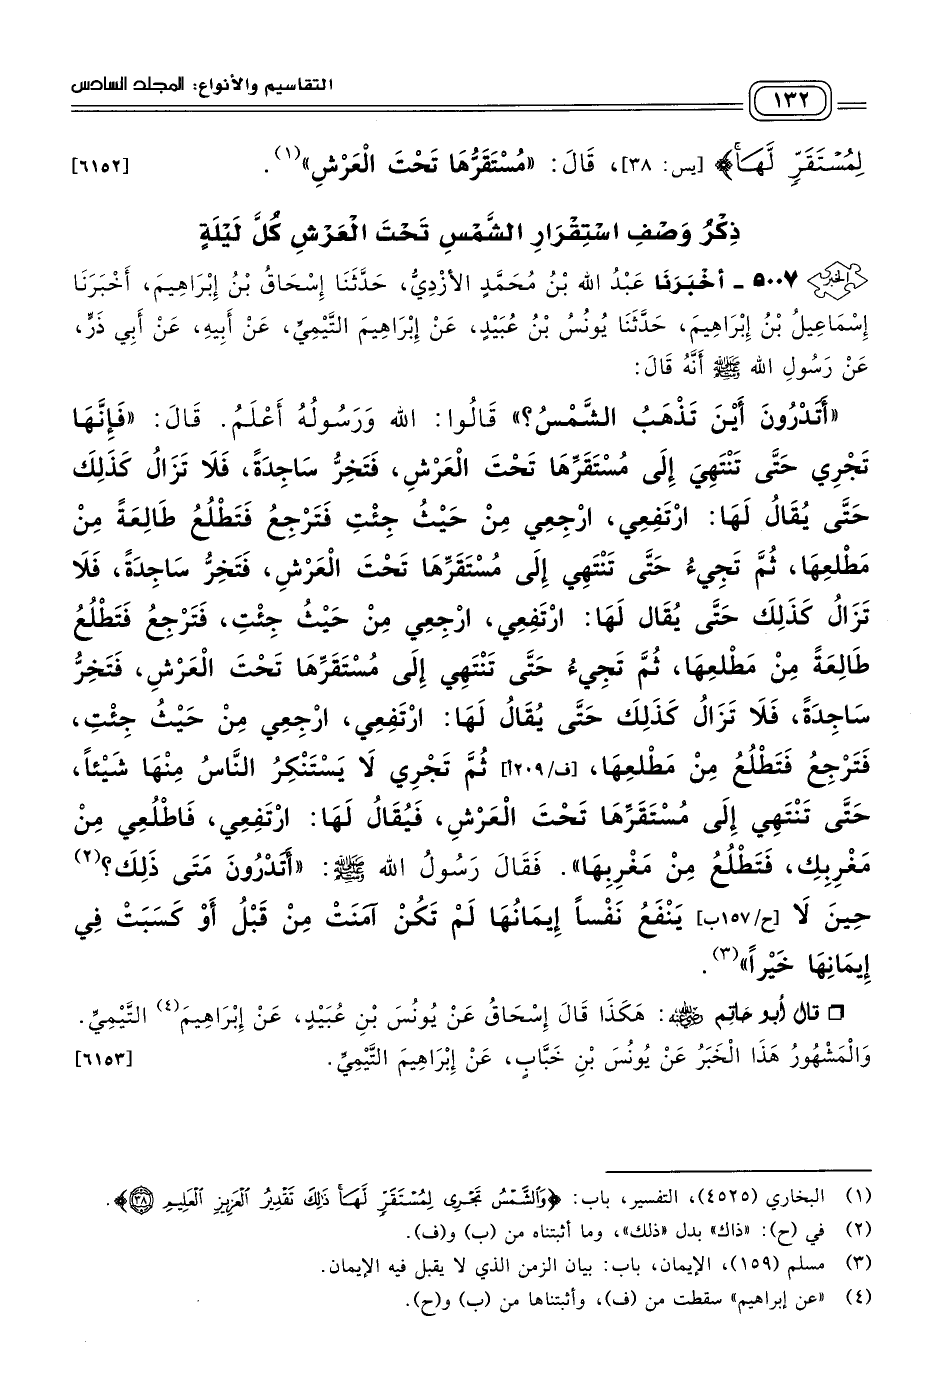 التقاسيم والأنواع: المجلد السادس
١٣٢
لِمُسْتَقَرٍّ لَّهَا﴾ [يس: ٣٨]، قَالَ: «مُسْتَقَرُّهَا تَحْتَ الْعَرْشِ»(١). [٦١٥٢]
ذِكْرُ وَصْفِ اسْتِقْرَارِ الشَّمْسِ تَحْتَ الْعَرْشِ كُلَّ لَيْلَةٍ
٥٠٠٧ - أَخْبَرَنَا عَبْدُ الله بْنُ مُحَمَّدٍ الأَزْدِيُّ، حَدَّثَنَا إِسْحَاقُ بْنُ إِبْرَاهِيمَ، أَخْبَرَنَا
إِسْمَاعِيلُ بْنُ إِبْرَاهِيمَ، حَدَّثَنَا يُونُسُ بْنُ عُبَيْدٍ، عَنْ إِبْرَاهِيمَ التَّيْمِيِّ، عَنْ أَبِيهِ، عَنْ أَبِي ذَرٍّ،
عَنْ رَسُولِ الله ﷺ أَنَّهُ قَالَ:
«أَتَدْرُونَ أَيْنَ تَذْهَبُ الشَّمْسُ؟» قَالُوا: الله وَرَسُولُهُ أَعْلَمُ. قَالَ: «فَإِنَّهَا
تَجْرِي حَتَّى تَنْتَهِيَ إِلَى مُسْتَقَرِّهَا تَحْتَ الْعَرْشِ، فَتَخِرُّ سَاجِدَةً، فَلَا تَزَالُ كَذَلِكَ
حَتَّى يُقَالُ لَهَا: ارْتَفِعِي، ارْجِعِي مِنْ حَيْثُ جِئْتِ فَتَرْجِعُ فَتَطْلُعُ طَالِعَةً مِنْ
مَطْلِعِهَا، ثُمَّ تَجِيءُ حَتَّى تَنْتَهِي إِلَى مُسْتَقَرِّهَا تَحْتَ الْعَرْشِ، فَتَخِرُّ سَاجِدَةً، فَلَا
تَزَالُ كَذَلِكَ حَتَّى يُقَال لَهَا: ارْتَفِعِي، ارْجِعِي مِنْ حَيْثُ جِئْتِ، فَتَرْجِعُ فَتَطْلُعُ
طَالِعَةً مِنْ مَطْلِعِهَا، ثُمَّ تَجِيءُ حَتَّى تَنْتَهِي إِلَى مُسْتَقَرِّهَا تَحْتَ الْعَرْشِ، فَتَخِرُّ
سَاجِدَةً، فَلَا تَزَالُ كَذَلِكَ حَتَّى يُقَالُ لَهَا: ارْتَفِعِي، ارْجِعِي مِنْ حَيْثُ جِئْتِ،
فَتَرْجِعُ فَتَطْلُعُ مِنْ مَطْلِعِهَا، [ف/٢٠٩أ] ثُمَّ تَجْرِي لَا يَسْتَنْكِرُ النَّاسُ مِنْهَا شَيْئاً،
حَتَّى تَنْتَهِي إِلَى مُسْتَقَرِّهَا تَحْتَ الْعَرْشِ، فَيُقَالُ لَهَا: ارْتَفِعِي، فَاطْلُعِي مِنْ
مَغْرِبِكِ، فَتَطْلُعُ مِنْ مَغْرِبِهَا». فَقَالَ رَسُولُ الله ﷺ: «أَتَدْرُونَ مَتَى ذَلِكَ؟(٢)
حِينَ لَا [ح/١٥٧ب] يَنْفَعُ نَفْساً إِيمَانُهَا لَمْ تَكُنْ آمَنَتْ مِنْ قَبْلُ أَوْ كَسَبَتْ فِي
إِيمَانِهَا خَيْراً»(٣).
□ قال أبو حاتم رضي الله عنه: هَكَذَا قَالَ إِسْحَاقُ عَنْ يُونُسَ بْنِ عُبَيْدٍ، عَنْ إِبْرَاهِيمَ(٤) التَّيْمِيِّ.
وَالْمَشْهُورُ هَذَا الْخَبَرُ عَنْ يُونُسَ بْنِ خَبَّابٍ، عَنْ إِبْرَاهِيمَ التَّيْمِيِّ. [٦١٥٣]
(١) البخاري (٤٥٢٥)، التفسير، باب: ﴿وَالشَّمْسُ تَجْرِي لِمُسْتَقَرٍّ لَّهَا ذَلِكَ تَقْدِيرُ الْعَزِيزِ الْعَلِيمِ ٣٨﴾.
(٢) في (ح): «ذاك» بدل «ذلك»، وما أثبتناه من (ب) و(ف).
(٣) مسلم (١٥٩)، الإيمان، باب: بيان الزمن الذي لا يقبل فيه الإيمان.
(٤) «عن إبراهيم» سقطت من (ف)، وأثبتناها من (ب) و(ح).